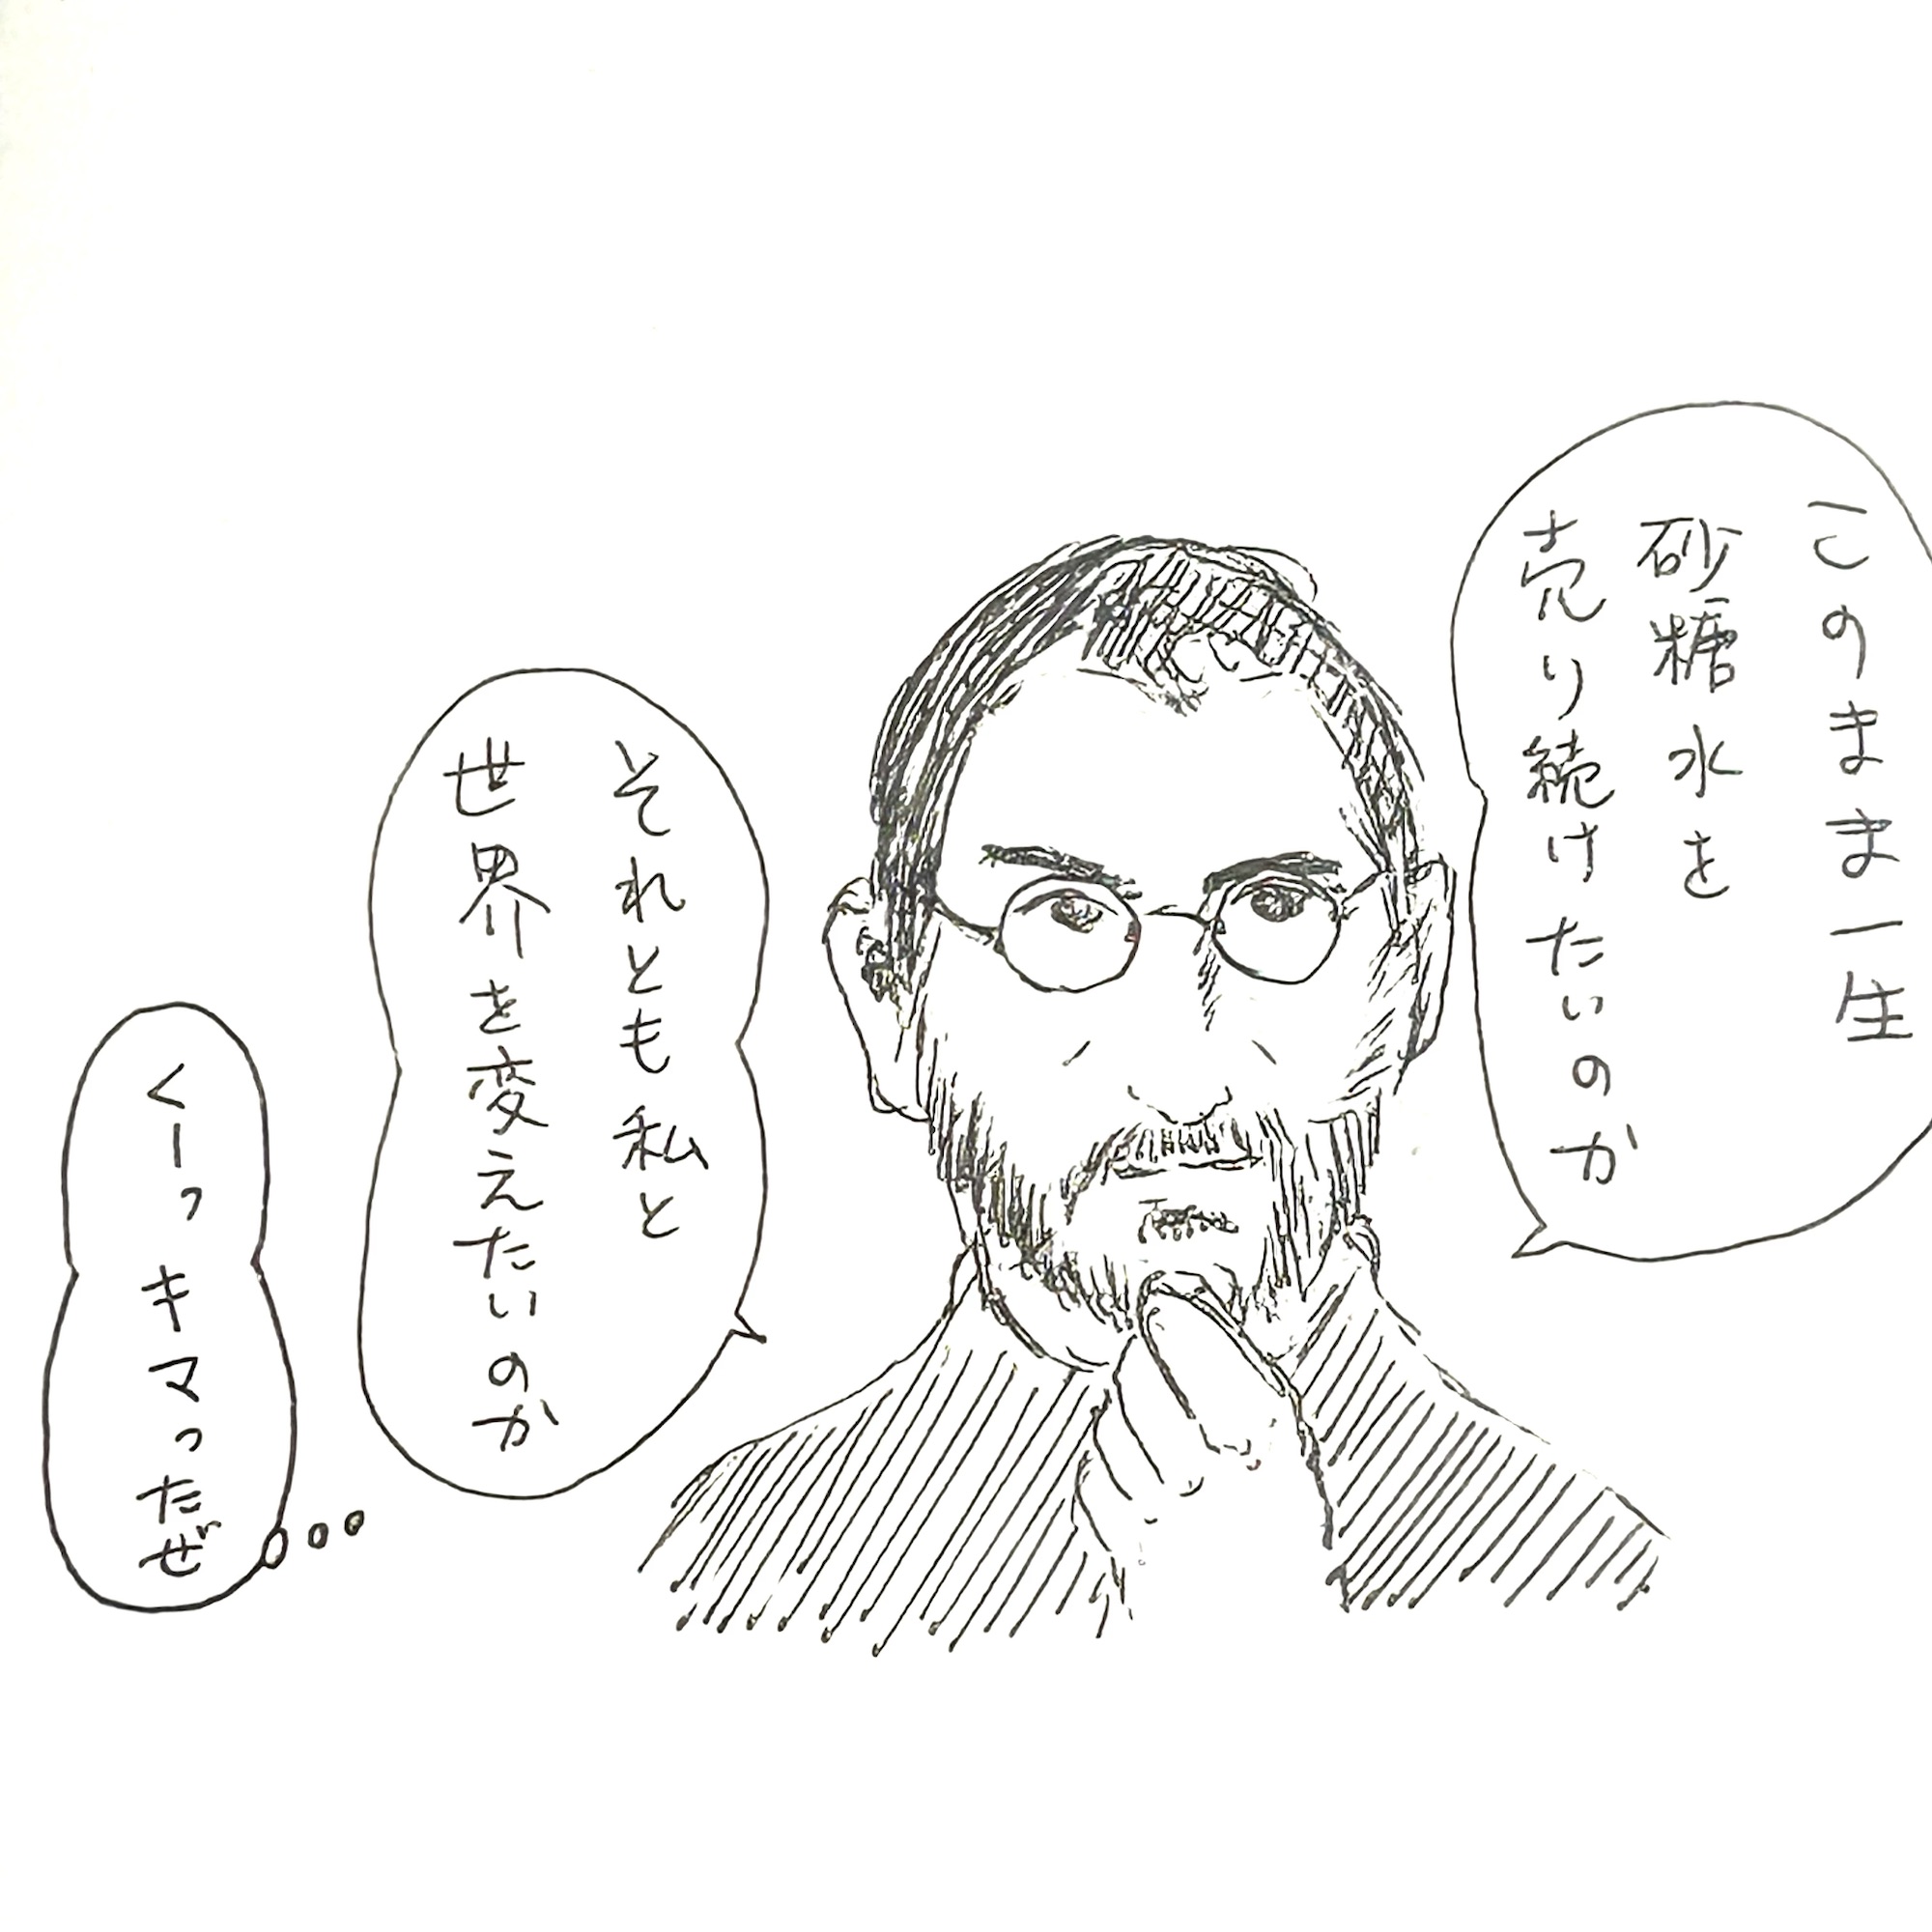 このまま一生
砂糖水を
売り続けたいのか
それとも私と
世界を変えたいのか
くーっキマったぜ